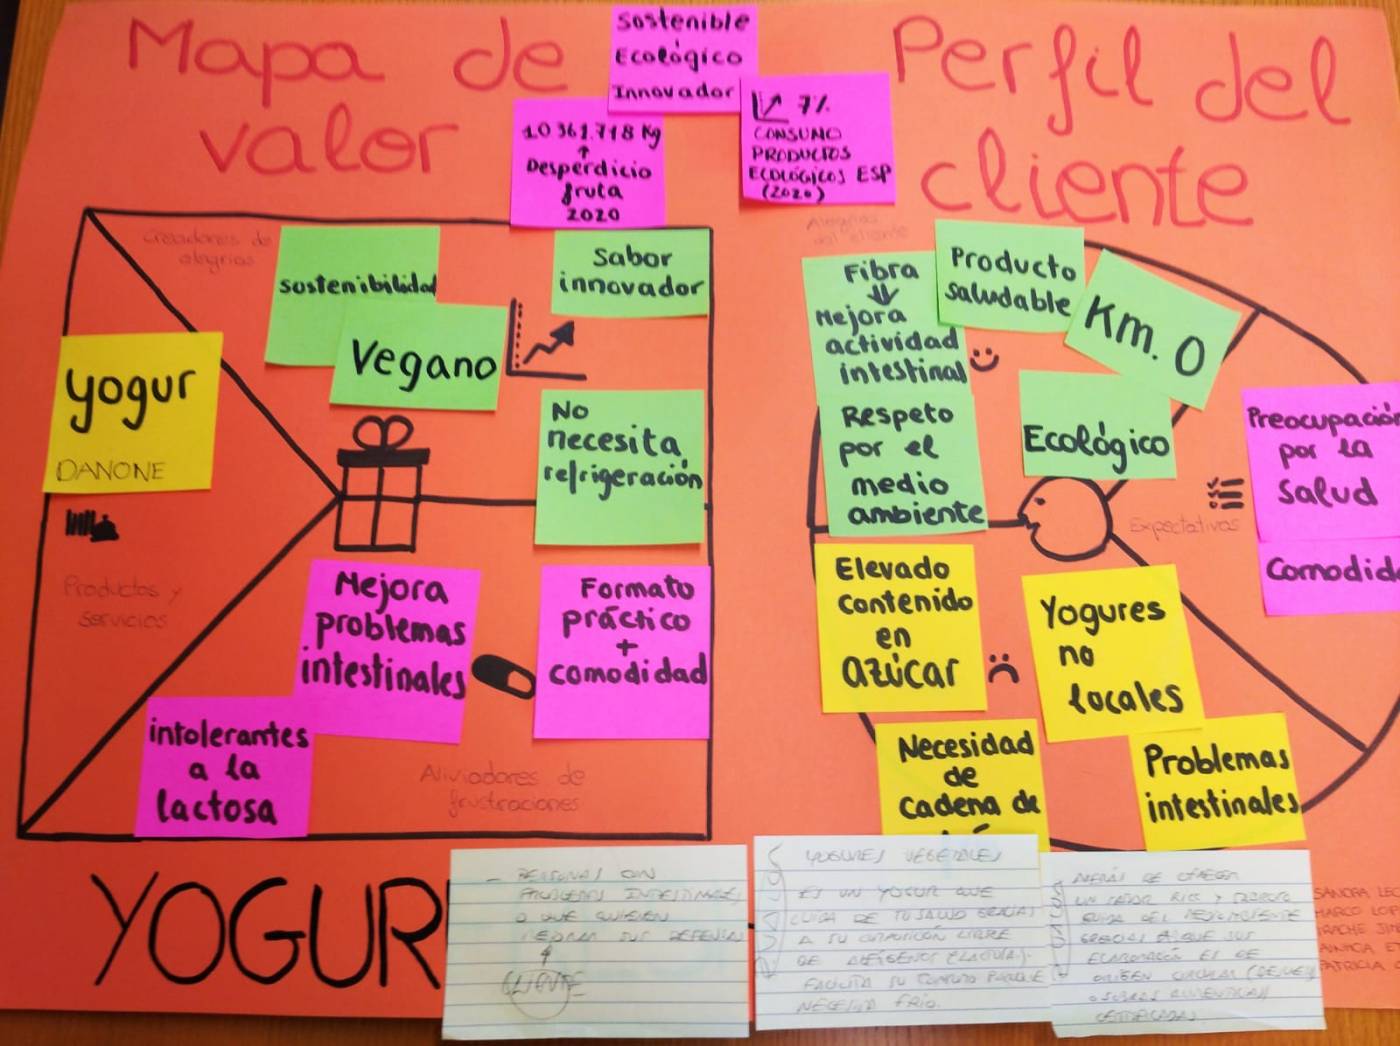 Mapa de
valor
Sostenible
Ecológico
Innovador
10 361.718 Kg
↑
Desperdicio
fruta
2020
7%
CONSUMO
PRODUCTOS
ECOLÓGICOS ESP
(2020)
Perfil del
cliente
Creadores de
alegrías
sostenibilidad
Vegano
Sabor
innovador
No
necesita
refrigeración
yogur
DANONE
Productos y
servicios
Mejora
problemas
intestinales
Formato
práctico
+
comodidad
intolerantes
a la
lactosa
Aliviadores de
frustraciones
Alegrías
del cliente
Fibra
⇓
Mejora
actividad
intestinal
Producto
saludable
Km. 0
Respeto
por el
medio
ambiente
Ecológico
Expectativas
Preocupación
por la
salud
Comodid
Elevado
contenido
en
azúcar
Yogures
no
locales
Necesidad
de
cadena de
Problemas
intestinales
YOGUR
- PERSONAS CON
PROBLEMAS INTESTINALES
O QUE QUIEREN
MEJORAR SUS DEFENSAS
CLIENTE
YOGURES VEGETALES
ES UN YOGUR QUE
CUIDA DE TU SALUD GRACIAS
A SU COMPOSICIÓN LIBRE
DE ALÉRGENOS (LACTOSA).
FACILITA SU CONSUMO PORQUE
NECESITA FRÍO.
ADEMÁS DE OFRECER
UN SABOR RICO Y
CUIDA DEL MEDIOAMBIENTE
GRACIAS A QUE SUS
ELABORACIÓN ES DE
ORIGEN CIRCULAR
O SOBRAS ALIMENTICIAS
SANDRA LEC
MARCO LOP
IRACHE JIM
AINHOA ET
PATRICIA